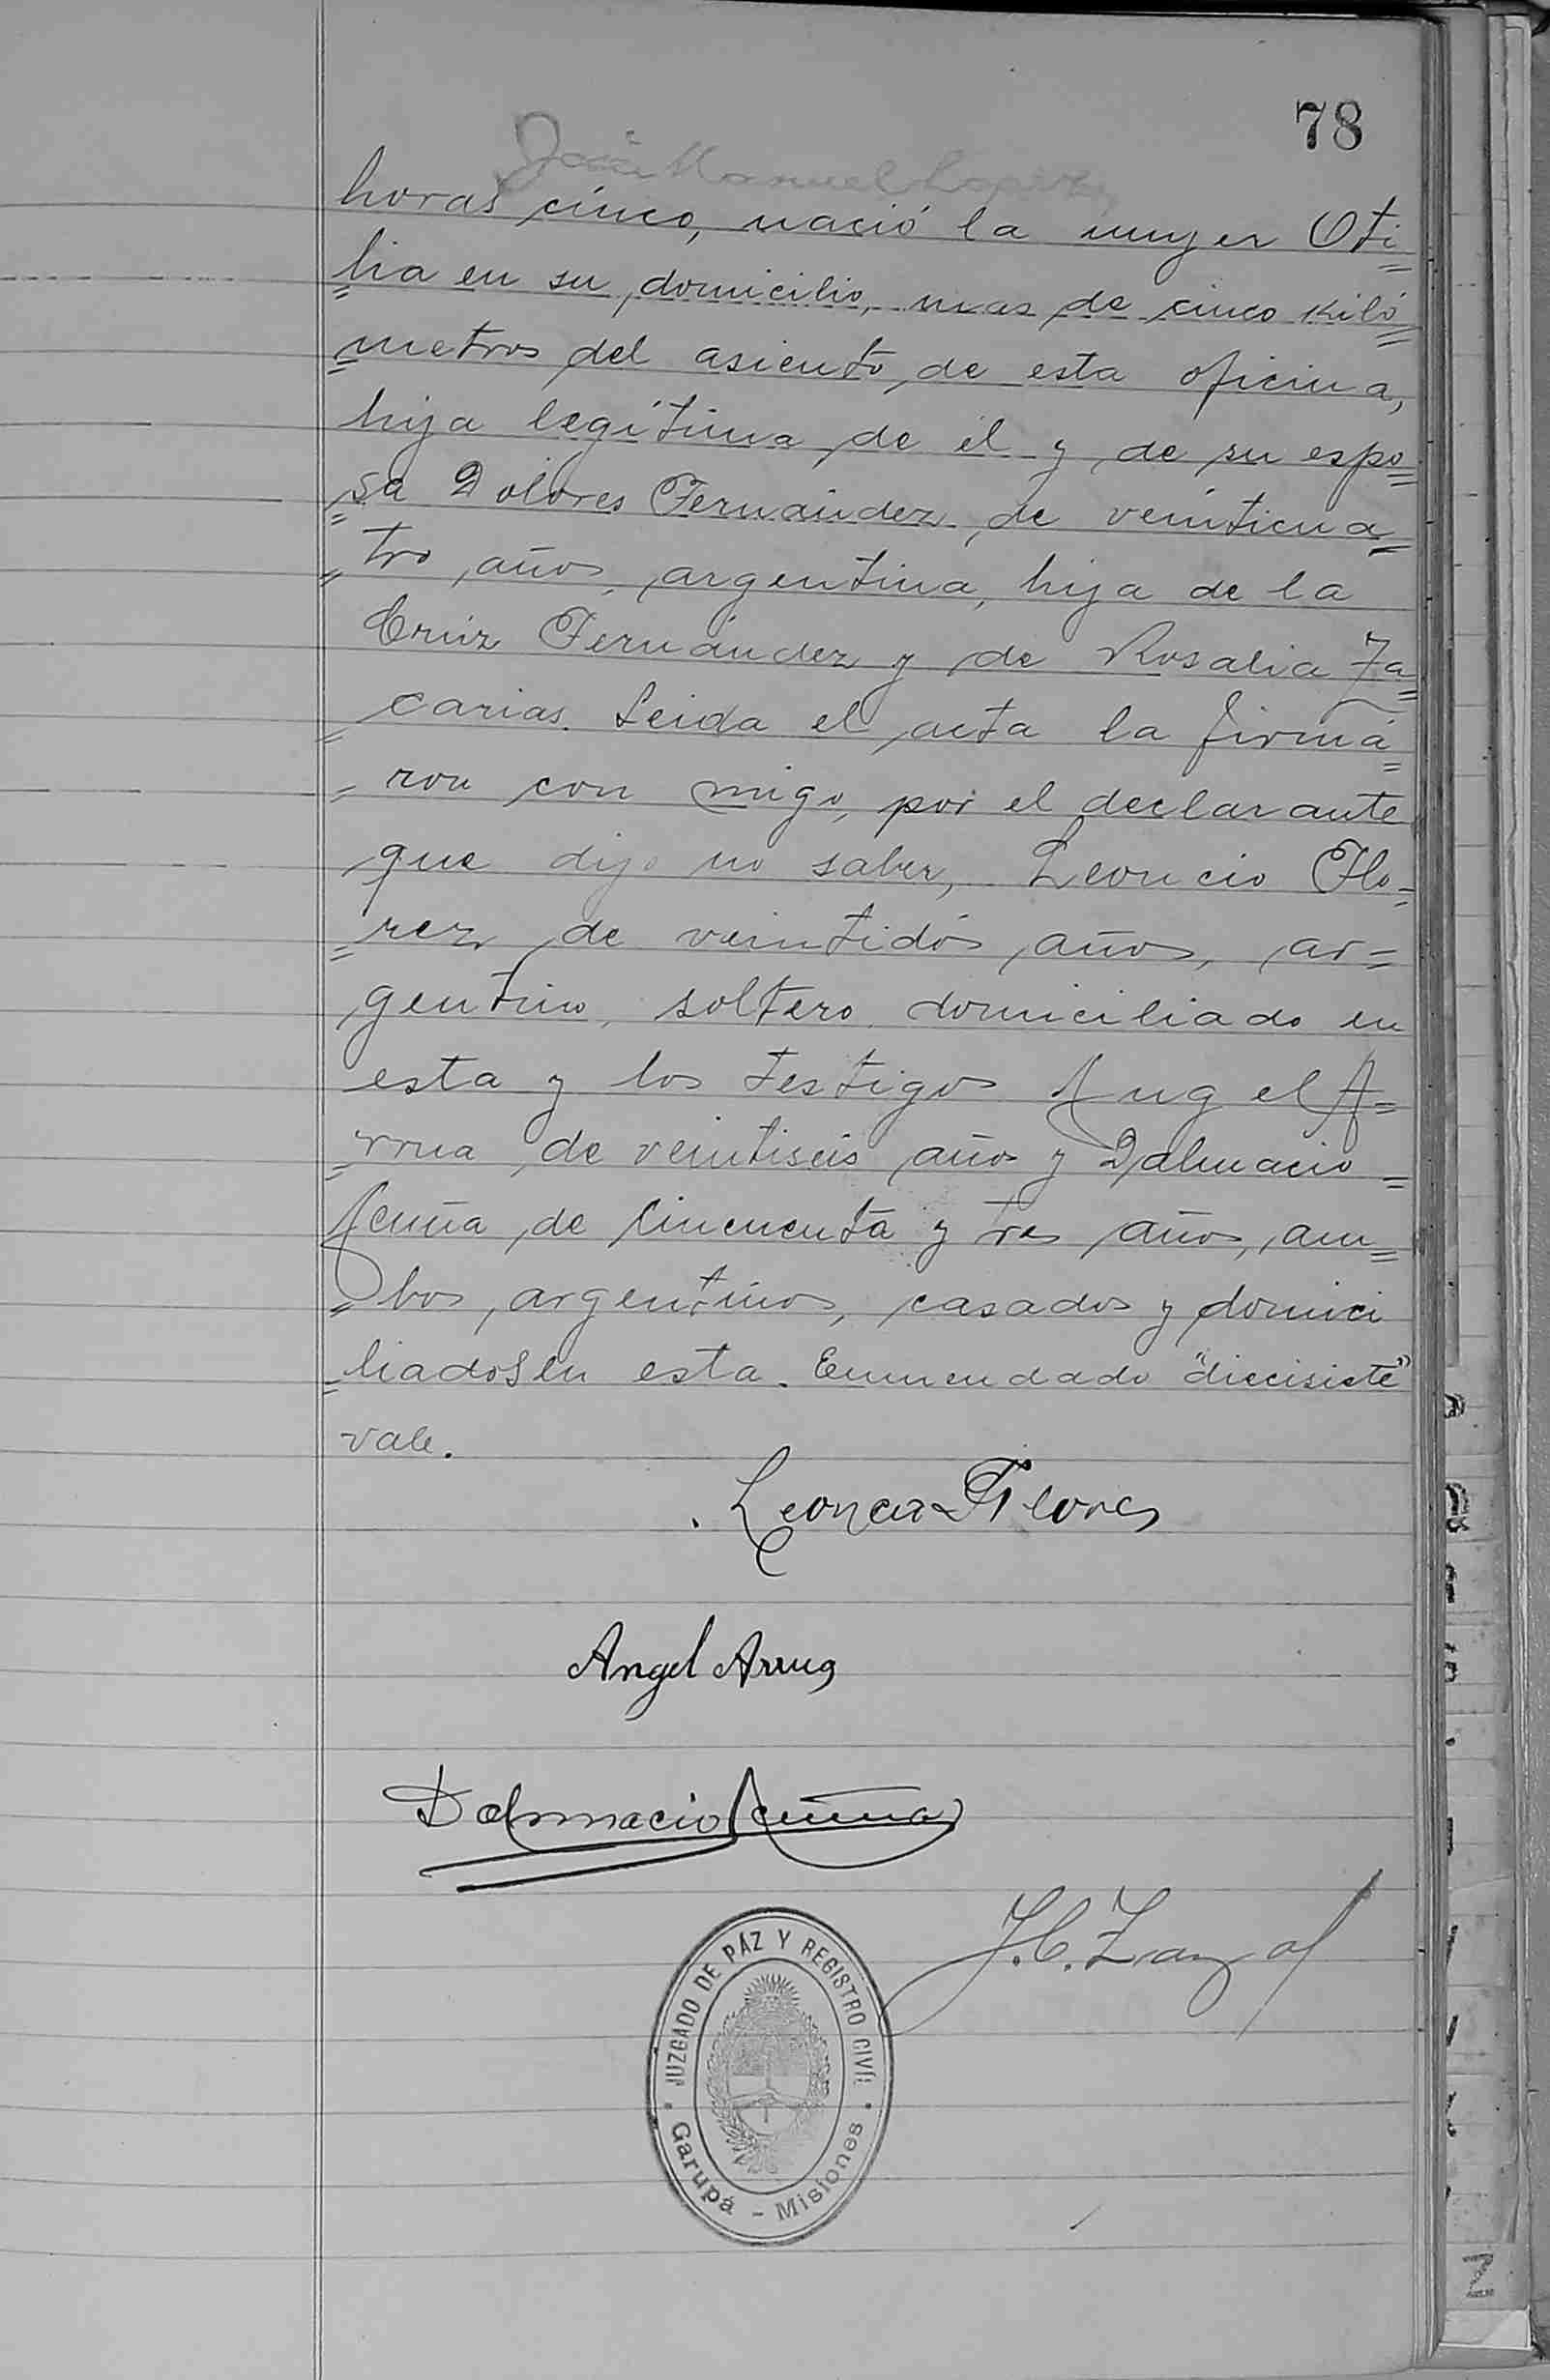 78
José Manuel Lopez
horas cinco, nació la mujer Oti=
=lia en su domicilio, mas de cinco kiló=
=metros del asiento de esta oficina,
hija legítima de él y de su espo=
=sa Dolores Fernández, de veinticua=
=tro años, argentina, hija de la
Cruz Fernández y de Rosalia Za=
=carias. Leida el acta la firmá=
=ron con migo, por el declarante
que dijo no saber, Leoncio Flo=
=rez de veintidós años, ar=
gentino, soltero, domiciliado en
esta y los testigos Angel A=
=rrua de veintiseis años y Dalmacio=
Acuña de Cincuenta y tres años, am=
=bos argentinos, casados y domici
=liados en esta. Enmendado "diecisiete"
vale.
Leoncio Flores
Angel Arrua
Dalmacio Acuña
J. C.
JUZGADO DE PAZ Y REGISTRO CIVIL
Garupá - Misiones